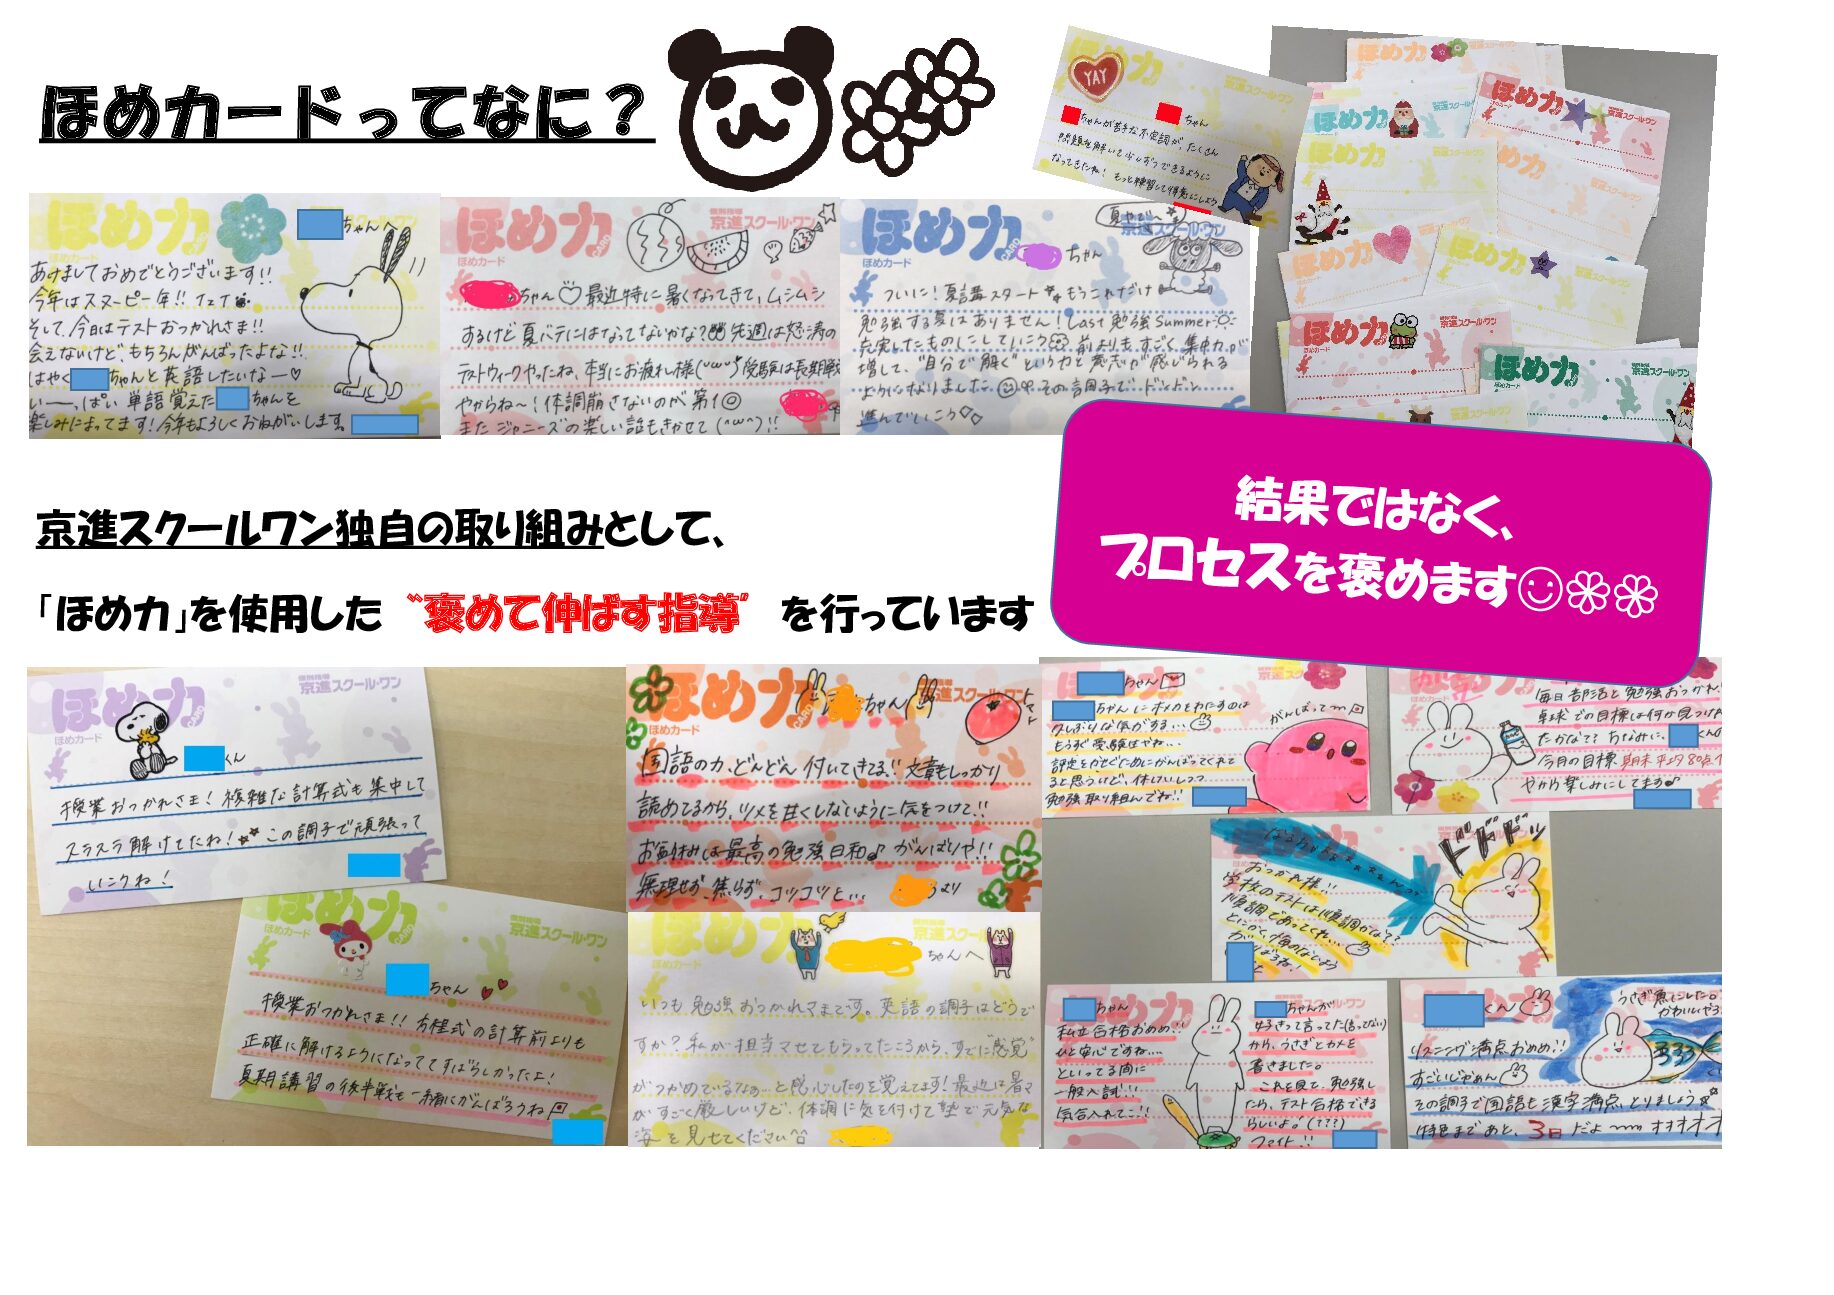 ほめカードってなに？
ほめカ
ほめカード
ちゃんへ
京進スクール・ワン
あけましておめでとうございます!!
今年はスヌーピー年!!
そして、今日はテストおつかれさま!!
会えないけど、もちろんがんばったよな!!
はやく ちゃんと英語したいなー♡
いーっぱい 単語覚えた ちゃんを
楽しみにまってます!今年もよろしくおねがいします。
ほめカ
ほめカード
個別指導
京進スクール・ワン
ちゃん♡最近特に暑くなってきて、ムシムシ
するけど夏バテにはなってないかな? 先週は怒涛の
テストウィークやったね、本当にお疲れ様(^ω^) 受験は長期戦
やからね〜!体調崩さないのが第1◎
また ジャニーズの楽しい話もきかせて(^ω^)!!
ほめカ
ほめカード
夏やで〜
京進スクール・ワン
ちゃん
ついに!夏講スタート もうこれだけ
勉強する夏はありません!Last勉強Summer
充実したものにしていこう 前よりも、すごく集中力が
増して、"自分で解く"という力と意志が感じられる
ようになりました。その調子で、ドンドン
進んでいこう
ほめカ
YAY
京進スクール・ワン
ちゃん
ちゃんが苦手な不定詞が、たくさん
問題を解いて少しずつできるように
なってきたね! もっと練習して得意にしよう
ほめカ
ほめカ
京進スクール・ワン
ほめカ
ほめカ
ほめカ
ほめカ
ほめカ
京進スクール・ワン
ほめカ
京進スクール・ワン
結果ではなく、
プロセスを褒めます☺
京進スクールワン独自の取り組みとして、
「ほめカ」を使用した〝褒めて伸ばす指導〞を行っています
ほめカ
ほめカード
個別指導
京進スクール・ワン
くん
授業おつかれさま! 複雑な計算式も集中して
スラスラ解けてたね! この調子で頑張って
いこうね!
ほめカ
ほめカード
個別指導
京進スクール・ワン
ちゃん
授業おつかれさま!! 方程式の計算前よりも
正確に解けるようになっててすばらしかったよ!
夏期講習の後半戦も一緒にがんばろうね
ほめカ
ほめカード
ちゃん
京進スクール・ワン
トマト
国語の力、どんどん付いてきてる!! 文章もしっかり
読めてるから、ツメを甘くしないように気をつけて!!
お盆休みは最高の勉強日和♪ がんばりや!!
無理せず、焦らず、コツコツと…
より
ほめカ
ほめカード
個別指導
京進スクール・ワン
ちゃんへ
いつも勉強おつかれさまです。英語の調子はどうで
すか? 私が担当させてもらってたころから、すでに"感覚"
がつかめているなぁ…と感心したのを覚えてます! 最近は暑さ
がすごく厳しいけど、体調に気を付けて塾で元気な
姿を見せてください
ちゃん
ちゃんにホメカをわたすのは
久しぶりな気がする…
もうすぐ受験生やね…
評定をかせぐためにがんばってくれて
ると思うけど、休けいしつつ
勉強取り組んでね!!
がんばって〜
毎日部活と勉強おつかれ
卓球での目標は何か見つけ
たかな?? ちなみに、 くんの
今月の目標 期末平均80点
やから楽しみにしてます♪
ドドドッ
おつかれ様!!
学校のテストは順調かな??
順調であってくれ…
ちゃん
私立合格おめめ!!
ひと安心ですね…
といってる間に
一般入試!!
気合入れてこ!!
ちゃんが
好きって言ってた(言ってない)
から、うさぎとカメを
書きました。
これを見て、勉強し
たら、テスト合格できる
らしいよ。(???)
ファイト!!
くん
うさぎ魚にしたら
かわいいやろ
リスニング満点おめめ!!
すごいじゃぁん
その調子で国語も漢字満点とりましょう
特色まであと、3日だよ